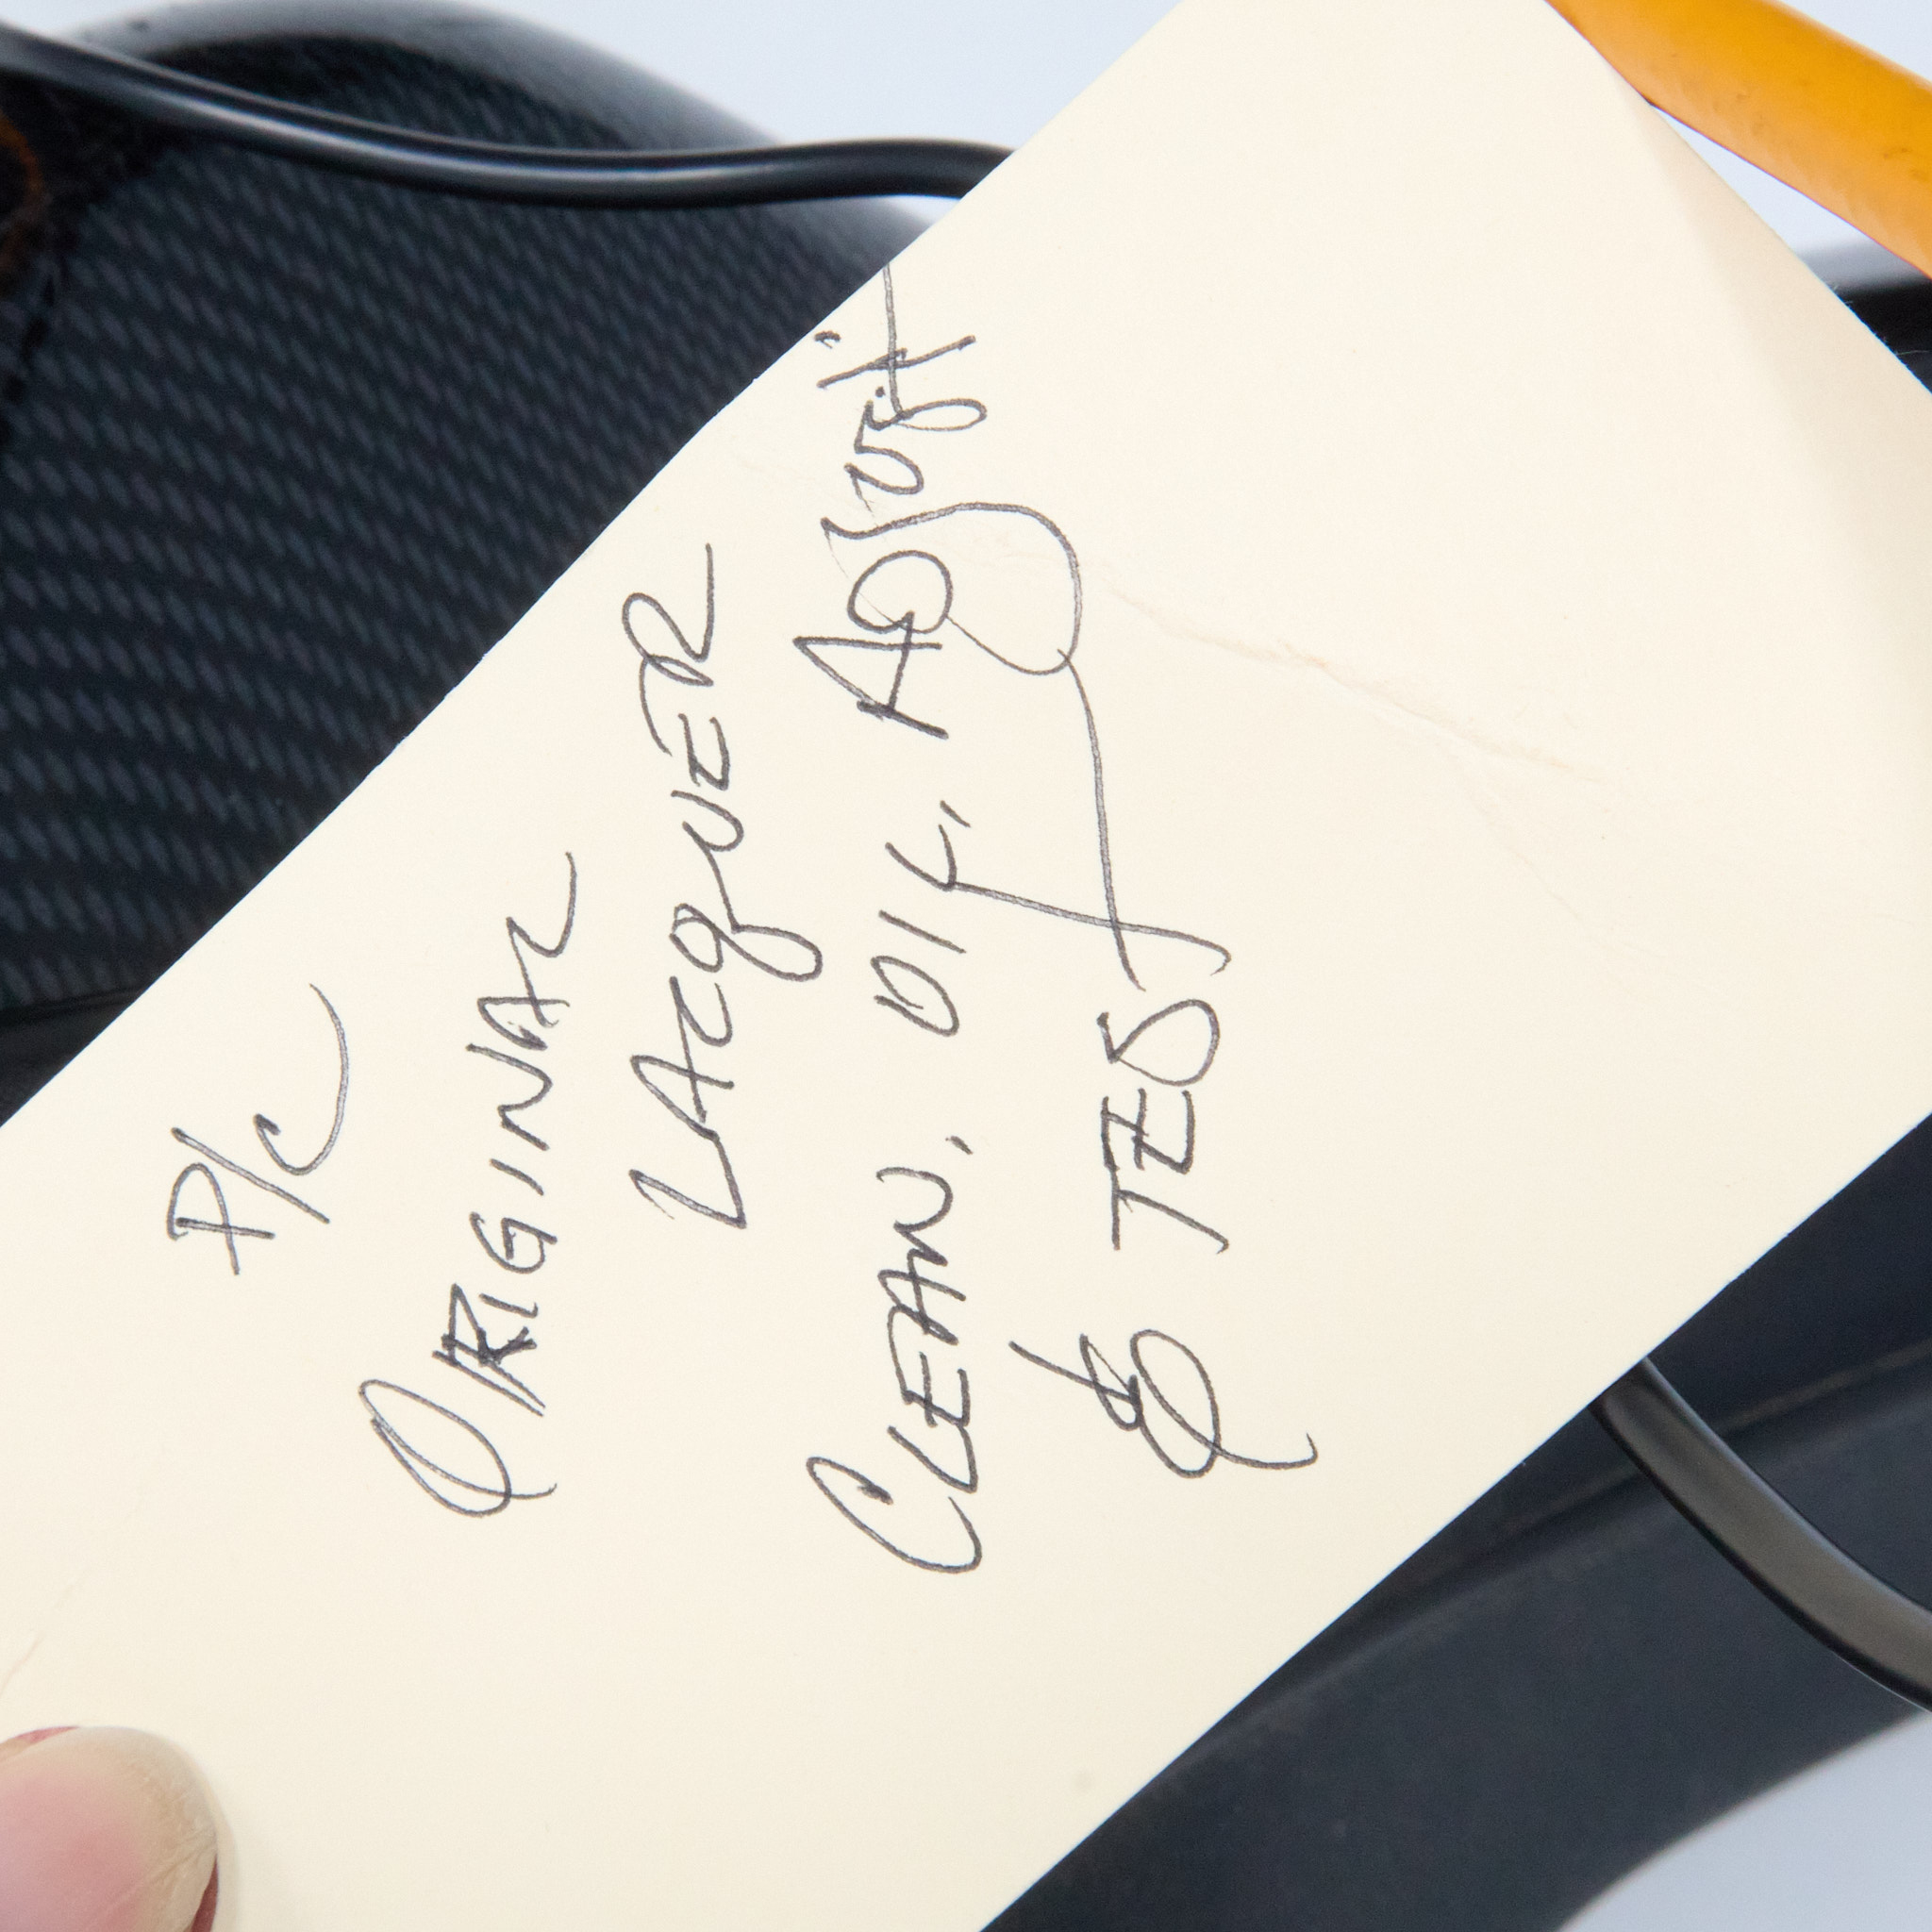 P/C
ORIGINAL
LACQUER
CLEAN, OIL, ADJUST
& TEST